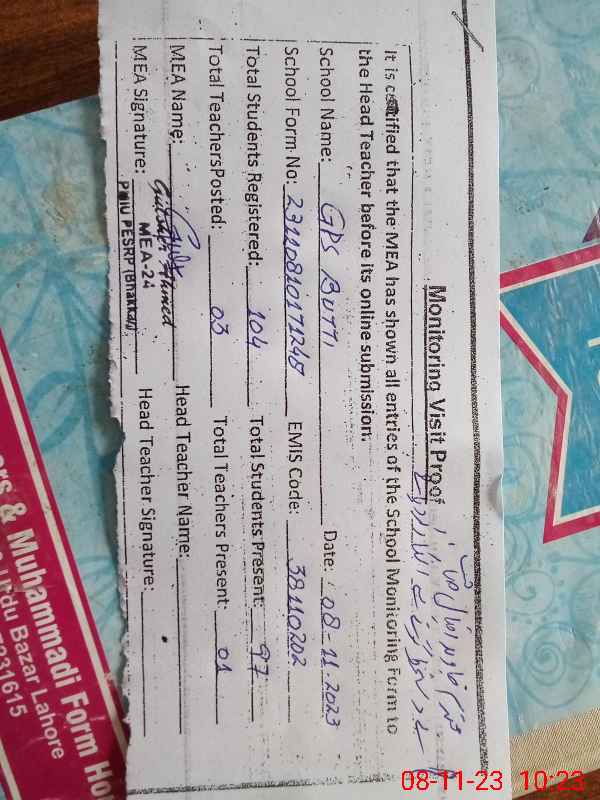 Monitoring Visit Proof
It is certified that the MEA has shown all entries of the School Monitoring Form to
the Head Teacher before its online submission.
School Name: GPS BUTTI Date: 08-11-2023
School Form No: 23110810171248 EMIS Code: 38110202
Total Students Registered: 104 Total Students Present: 97
Total TeachersPosted: 03 Total Teachers Present: 01
MEA Name: Gulsher Ahmed Head Teacher Name:
MEA Signature: Head Teacher Signature:
MEA-24
PMIU PESRP (Bhakkar)
ers & Muhammadi Form Ho
Urdu Bazar Lahore
7231615
08-11-23 10:23